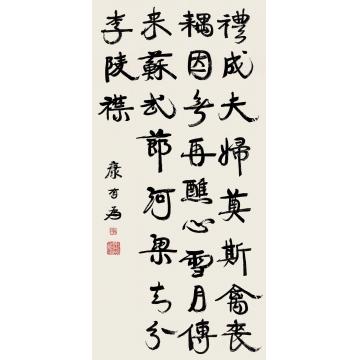 禮成夫婦莫斯禽喪
耦因無再醮心雪月傳
来蘇武節河梁分
李陵襟
康有為